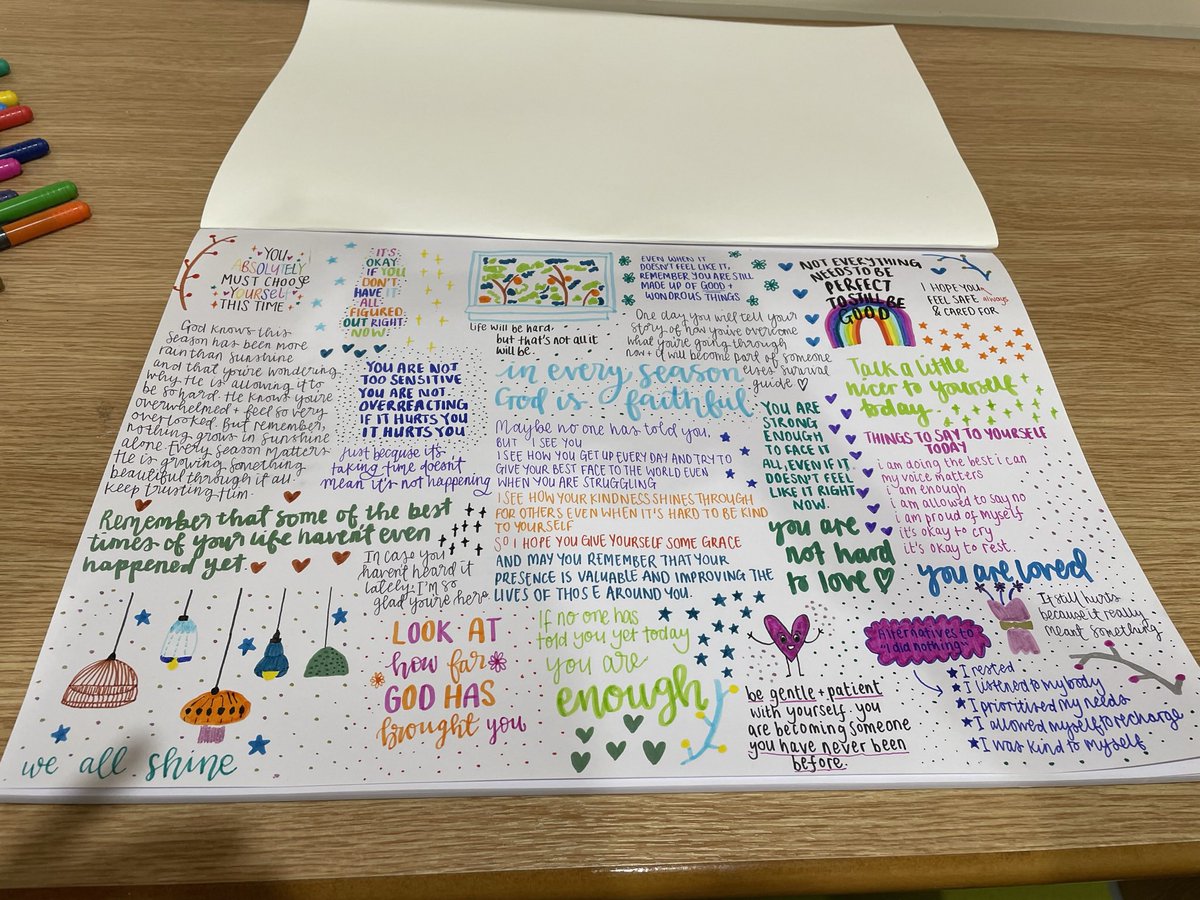 YOU
ABSOLUTELY
MUST CHOOSE
YOURSELF
THIS TIME
IT'S
OKAY
IF YOU
DON'T
HAVE IT
ALL
FIGURED
OUT RIGHT
NOW
life will be hard.
but that's not all it
will be.
EVEN WHEN IT
DOESN'T FEEL LIKE IT,
REMEMBER YOU ARE STILL
MADE UP OF GOOD +
WONDROUS THINGS
NOT EVERYTHING
NEEDS TO BE
PERFECT
TO STILL BE
GOOD
I HOPE YOU
FEEL SAFE always
& CARED FOR
God knows this
season has been more
rain than sunshine
and that you're wondering
why He is allowing it to
be so hard. He knows you're
overwhelmed + feel so very
overlooked. But remember,
nothing grows in sunshine
alone. Every season matters
He is growing something
beautiful through it all.
Keep trusting Him.
YOU ARE NOT
TOO SENSITIVE
YOU ARE NOT
OVERREACTING
IF IT HURTS YOU
IT HURTS YOU
Just because it's
taking time doesn't
mean it's not happening
One day you will tell your
story of how you've overcome
what you're going through
now + it will become part of someone
else's survival
guide
in every season
God is faithful
Talk a little
nicer to yourself
today.
Maybe no one has told you,
BUT I SEE YOU
I SEE HOW YOU GET UP EVERY DAY AND TRY TO
GIVE YOUR BEST FACE TO THE WORLD EVEN
WHEN YOU ARE STRUGGLING
I SEE HOW YOUR KINDNESS SHINES THROUGH
FOR OTHERS EVEN WHEN IT'S HARD TO BE KIND
TO YOURSELF
SO I HOPE YOU GIVE YOURSELF SOME GRACE
AND MAY YOU REMEMBER THAT YOUR
PRESENCE IS VALUABLE AND IMPROVING THE
LIVES OF THOSE AROUND YOU.
YOU ARE
STRONG
ENOUGH
TO FACE IT
ALL, EVEN IF IT
DOESN'T FEEL
LIKE IT RIGHT
NOW.
THINGS TO SAY TO YOURSELF
TODAY
i am doing the best i can
my voice matters
i am enough
i am allowed to say no
i am proud of myself
it's okay to cry
it's okay to rest.
Remember that some of the best
times of your life haven't even
happened yet.
In case you
haven't heard it
lately. I'm so
glad you're here
you are
not hard
to love
you are loved
LOOK AT
how far
GOD HAS
brought you
If no one has
told you yet today
you are
enough
be gentle + patient
with yourself. you
are becoming someone
you have never been
before.
Alternatives to
"I did nothing"
I rested
I listened to my body
I prioritised my needs
I allowed myself to recharge
I was kind to myself
It still hurts
because it really
meant something
we all shine